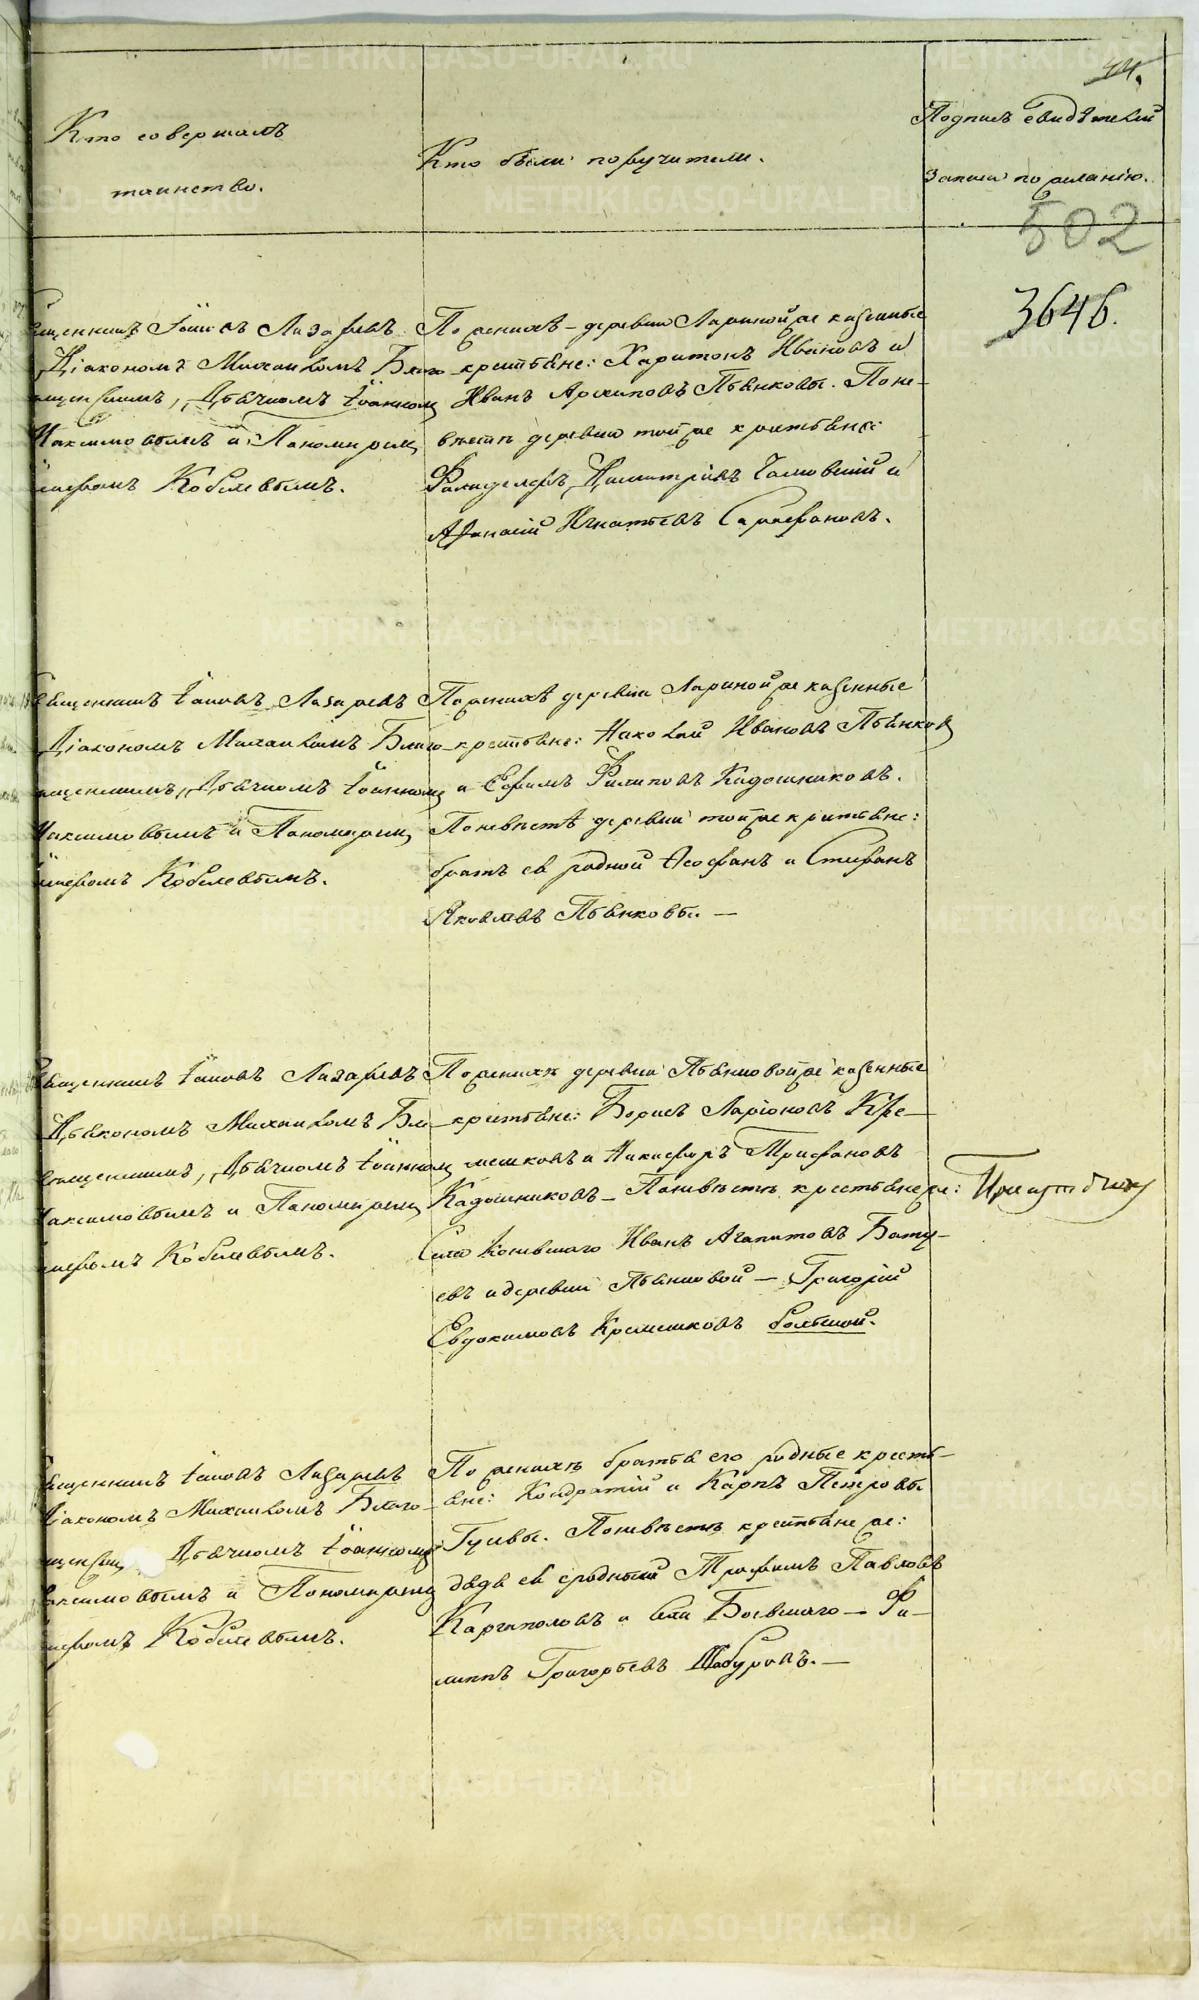 44.
Кто совершалъ
таинство.
Кто были поручители.
Подпись свидѣтелей
записи по желанію.
502
3646.
Священникъ Іаковъ Лазаревъ
Діакономъ Михаиломъ Благо-
вещенскимъ, Дьячкомъ Іоанномъ
Максимовымъ и Пономаремъ
Кобелевымъ.
По женихѣ – деревни Лариной же казенные
крестьяне: Харитонъ Ивановъ и
Иванъ Архиповъ Пьянковы. По не-
вѣстѣ деревни той же крестьяне:
Димитріевъ и
Афанасій Игнатьевъ Сарафановъ.
Священникъ Іаковъ Лазаревъ
Діакономъ Михаиломъ Благо-
вещенскимъ, Дьячкомъ Іоанномъ
Максимовымъ и Пономаремъ
Кобелевымъ.
По женихѣ деревни Лариной же казенные
крестьяне: Николай Ивановъ Пьянковъ
и Ефимъ Филиповъ Кадошниковъ.
По невѣстѣ деревни той же крестьяне:
братъ ея родной Ѳеофанъ и Стефанъ
Яковлевъ Пьянковы. —
Священникъ Іаковъ Лазаревъ
Дьякономъ Михаиломъ Бла-
говещенскимъ, Дьячкомъ Іоанномъ
Максимовымъ и Пономаремъ
Кобелевымъ.
По женихѣ деревни Пьянковой же казенные
крестьяне: Борисъ Ларіоновъ Кре-
мешковъ и Никифоръ Трифановъ
Кадошниковъ – По невѣстѣ крестьяне же:
Села Коневшаго Иванъ Агапитовъ Бату-
евъ и деревни Пьянковой — Григорій
Евдокимовъ Кремешковъ большой.
Священникъ Іаковъ Лазаревъ
Діакономъ Михаиломъ Благо-
Дьячкомъ Іоанномъ
Максимовымъ и Пономаремъ
Кобелевымъ.
По женихѣ братья его родные кресть-
яне: Кондратій и Карпъ Петровы
Гуевы. По невѣстѣ крестьяне же:
дядя ея сродный Трофимъ Павловъ
Каргаполовъ и села Боевшаго — Фи-
липпъ Григорьевъ Шабуровъ. —